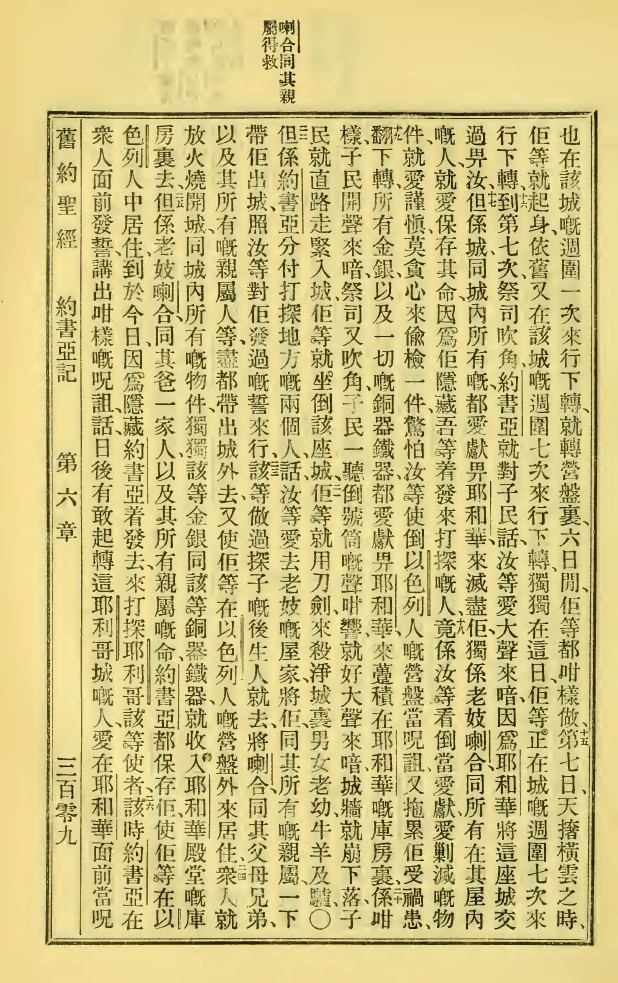 喇合同其親
屬得救
也在該城嘅週圍一次來行下轉、就轉營盤裏、六日間、佢等都咁樣做、十五第七日、天撘橫雲之時、
佢等就起身、依舊又在該城嘅週圍七次來行下轉、獨獨在這日、佢等正在城嘅週圍七次來
行下轉、十六到第七次祭司吹角、約書亞就對子民話、汝等愛大聲來喑、因爲耶和華將這座城交
過畀汝、十七但係城同城內所有嘅、都愛獻畀耶和華來滅盡佢、獨係老妓喇合同所有在其屋內
嘅人、就愛保存其命、因爲佢隱藏吾等着發來打探嘅人、十八竟係汝等看倒當愛獻愛剿滅嘅物
件、就愛謹愼、莫貪心來偷檢一件、驚怕汝等使倒以色列人嘅營盤當呪詛、又拖累佢受禍患、
十九翻下轉所有金銀、以及一切嘅銅器鐵器、都愛獻畀耶和華、來薹積在耶和華嘅庫房裏、二十係咁
樣子民開聲來喑、祭司又吹角、子民一聽倒號筒嘅聲咁響、就好大聲來喑、城牆就崩下落、子
民就直路走緊入城、佢等就坐倒該座城、二一佢等就用刀劍來殺淨城裏男女老幼牛羊及驢、〇
二二但係約書亞分付打探地方嘅兩個人、話、汝等愛去老妓嘅屋家、將佢同其所有嘅親屬、一下
帶佢出城、照汝等對佢發過嘅誓來行、二三該等做過探子嘅後生人就去、將喇合同其父母兄弟、
以及其所有嘅親屬人等、盡都帶出城外去、又使佢等在以色列人嘅營盤外來居住、二四衆人就
放火燒開城、同城內所有嘅物件、獨獨該等金銀、同該等銅器鐵器、就收入耶和華殿堂嘅庫
房裏去、二五但係老妓喇合同其爸一家人、以及其所有親屬嘅命、約書亞都保存佢、使佢等在以
色列人中居住、到於今日、因爲隱藏約書亞着發去來打探耶利哥該等使者、二六該時約書亞在
衆人面前發誓、講出咁樣嘅呪詛話、日後有敢起轉這耶利哥城嘅人、愛在耶和華面前當呪
舊約聖經 約書亞記 第六章 三百零九